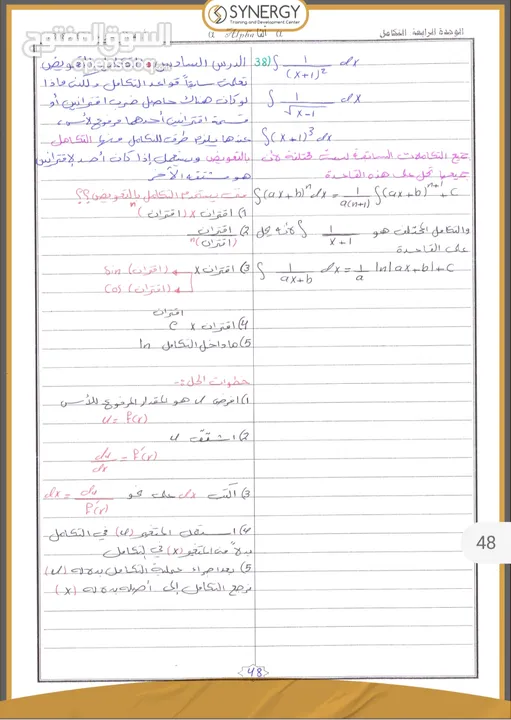 SYNERGY
Training and Development Center
الوحدة الرابعة التكامل
ألفا Alpha α
السوق المفتوح
opensooq.com
38) ∫ 1/(x+1)² dx
∫ 1/√(x-1) dx
∫(x+1)³ dx
جميع التكاملات السابقة ليست مختلفة لأن
جميعها تحل على هذه القاعدة
∫(ax+b)ⁿ dx = 1/a(n+1) ∫(ax+b)ⁿ⁺¹ + C
والتكامل المختلف هو ∫ 1/(x+1) لأنه يحل
على القاعدة
∫ 1/(ax+b) dx = 1/a ln|ax+b| + C
الدرس السادس التكامل بالتعويض
تعلمت سابقاً قواعد التكامل ولكن ماذا
لو كان هناك حاصل ضرب اقترانين أو
قسمة اقترانين أحدهما مرفوع لأس
عندها يلزم طرق للتكامل منها التكامل
بالتعويض ويستعمل إذا كان أحد الإقترانين
هو مشتقة الآخر
متى يستخدم التكامل بالتعويض؟؟
1) اقتران × (اقتران)ⁿ
2) اقتران / (اقتران)ⁿ
3) اقتران × sin (اقتران)
cos (اقتران)
4) اقتران × e^اقتران
5) ماداخل التكامل ln
خطوات الحل:-
1) افرض u هو المقدار المرفوع للأس
u = f(x)
2) اشتق u
du/dx = f'(x)
3) اكتب dx على نحو dx = du/f'(x)
4) استعمل المتغير (u) في التكامل
بدلاً من المتغير (x) في التكامل
5) بعد اجراء عملية التكامل بدلالة (u)
نرجع التكامل إلى أصله بدلالة (x)
48
48